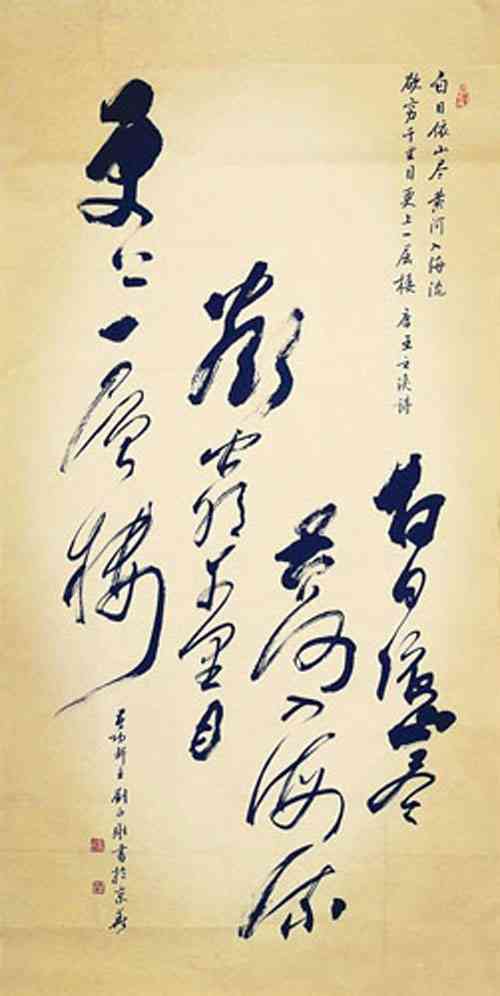 白日依山尽黄河入海流
欲穷千里目更上一层楼 唐王之涣诗
白日依山尽
黄河入海流
欲窮千里目
更上一層樓
書於京華